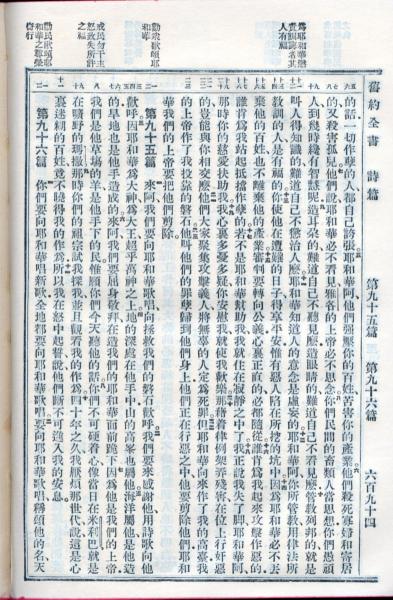 舊約全書 詩篇 第九十五篇 第九十六篇 六百九十四
爲耶和華懲
責訓誨者其
人有福
勸衆歌頌耶
和華
戒民勿干主
怒致失所許
之福
勸民歌頌耶
和華之尊榮
奇行
的話一切作孽的人都自己誇張耶和華阿他們強壓你的百姓苦害你的產業他們殺死寡婦和寄居
的又殺害孤兒他們說耶和華必不看見雅各的上帝必不思念你們民間的畜類人當思想你們愚頑
人到幾時纔有智慧呢造耳朵的難道自己不聽見麼造眼睛的難道自己不看見麼管教列邦的就是
叫人得知識的難道自己不懲治人麼耶和華知道人的意念是虛妄的耶和華阿你所管教用律法所
教訓的人是有福的你使他在遭難的日子得享平安惟有惡人陷在所挖的坑中因爲耶和華必不丟
棄他的百姓也不離棄他的產業審判要轉向公義心裏正直的必都隨從誰肯爲我起來攻擊作惡的
誰肯爲我站起抵擋作孽的若不是耶和華幫助我我就住在寂靜之中了我正說我失了脚耶和華阿
那時你的慈愛扶助我我心裏多憂多疑你安慰我就使我歡樂那藉着律例架弄殘害在位上行奸惡
的豈能與你相交麼他們大家聚集攻擊義人將無辜的人定爲死罪但耶和華向來作了我的高臺我
的上帝作了我投靠的磐石他叫他們的罪孽歸到他們身上他們正在行惡之中他要剪除他們耶和
華我們的上帝要把他們剪除
第九十五篇 來阿我們要向耶和華歌唱向拯救我們的磐石歡呼我們要來感謝他用詩歌向他
歡呼因耶和華爲大神爲大王超乎萬神之上地的深處在他手中山的高峯也屬他海洋屬他是他造
的旱地也是他手造成的來阿我們要屈身敬拜在造我們的耶和華面前跪下因爲他是我們的上帝
我們是他草場的羊是他手下的民惟願你們今天聽他的話你們不可硬着心像當日在米利巴就是
在曠野的瑪撒那時你們的祖宗試我探我並且觀看我的作爲四十年之久我厭煩那世代說這是心
裏迷糊的百姓竟不曉得我的作爲所以我在怒中起誓說他們斷不可進入我的安息
第九十六篇 你們要向耶和華唱新歌全地都要向耶和華歌唱要向耶和華歌唱稱頌他的名天